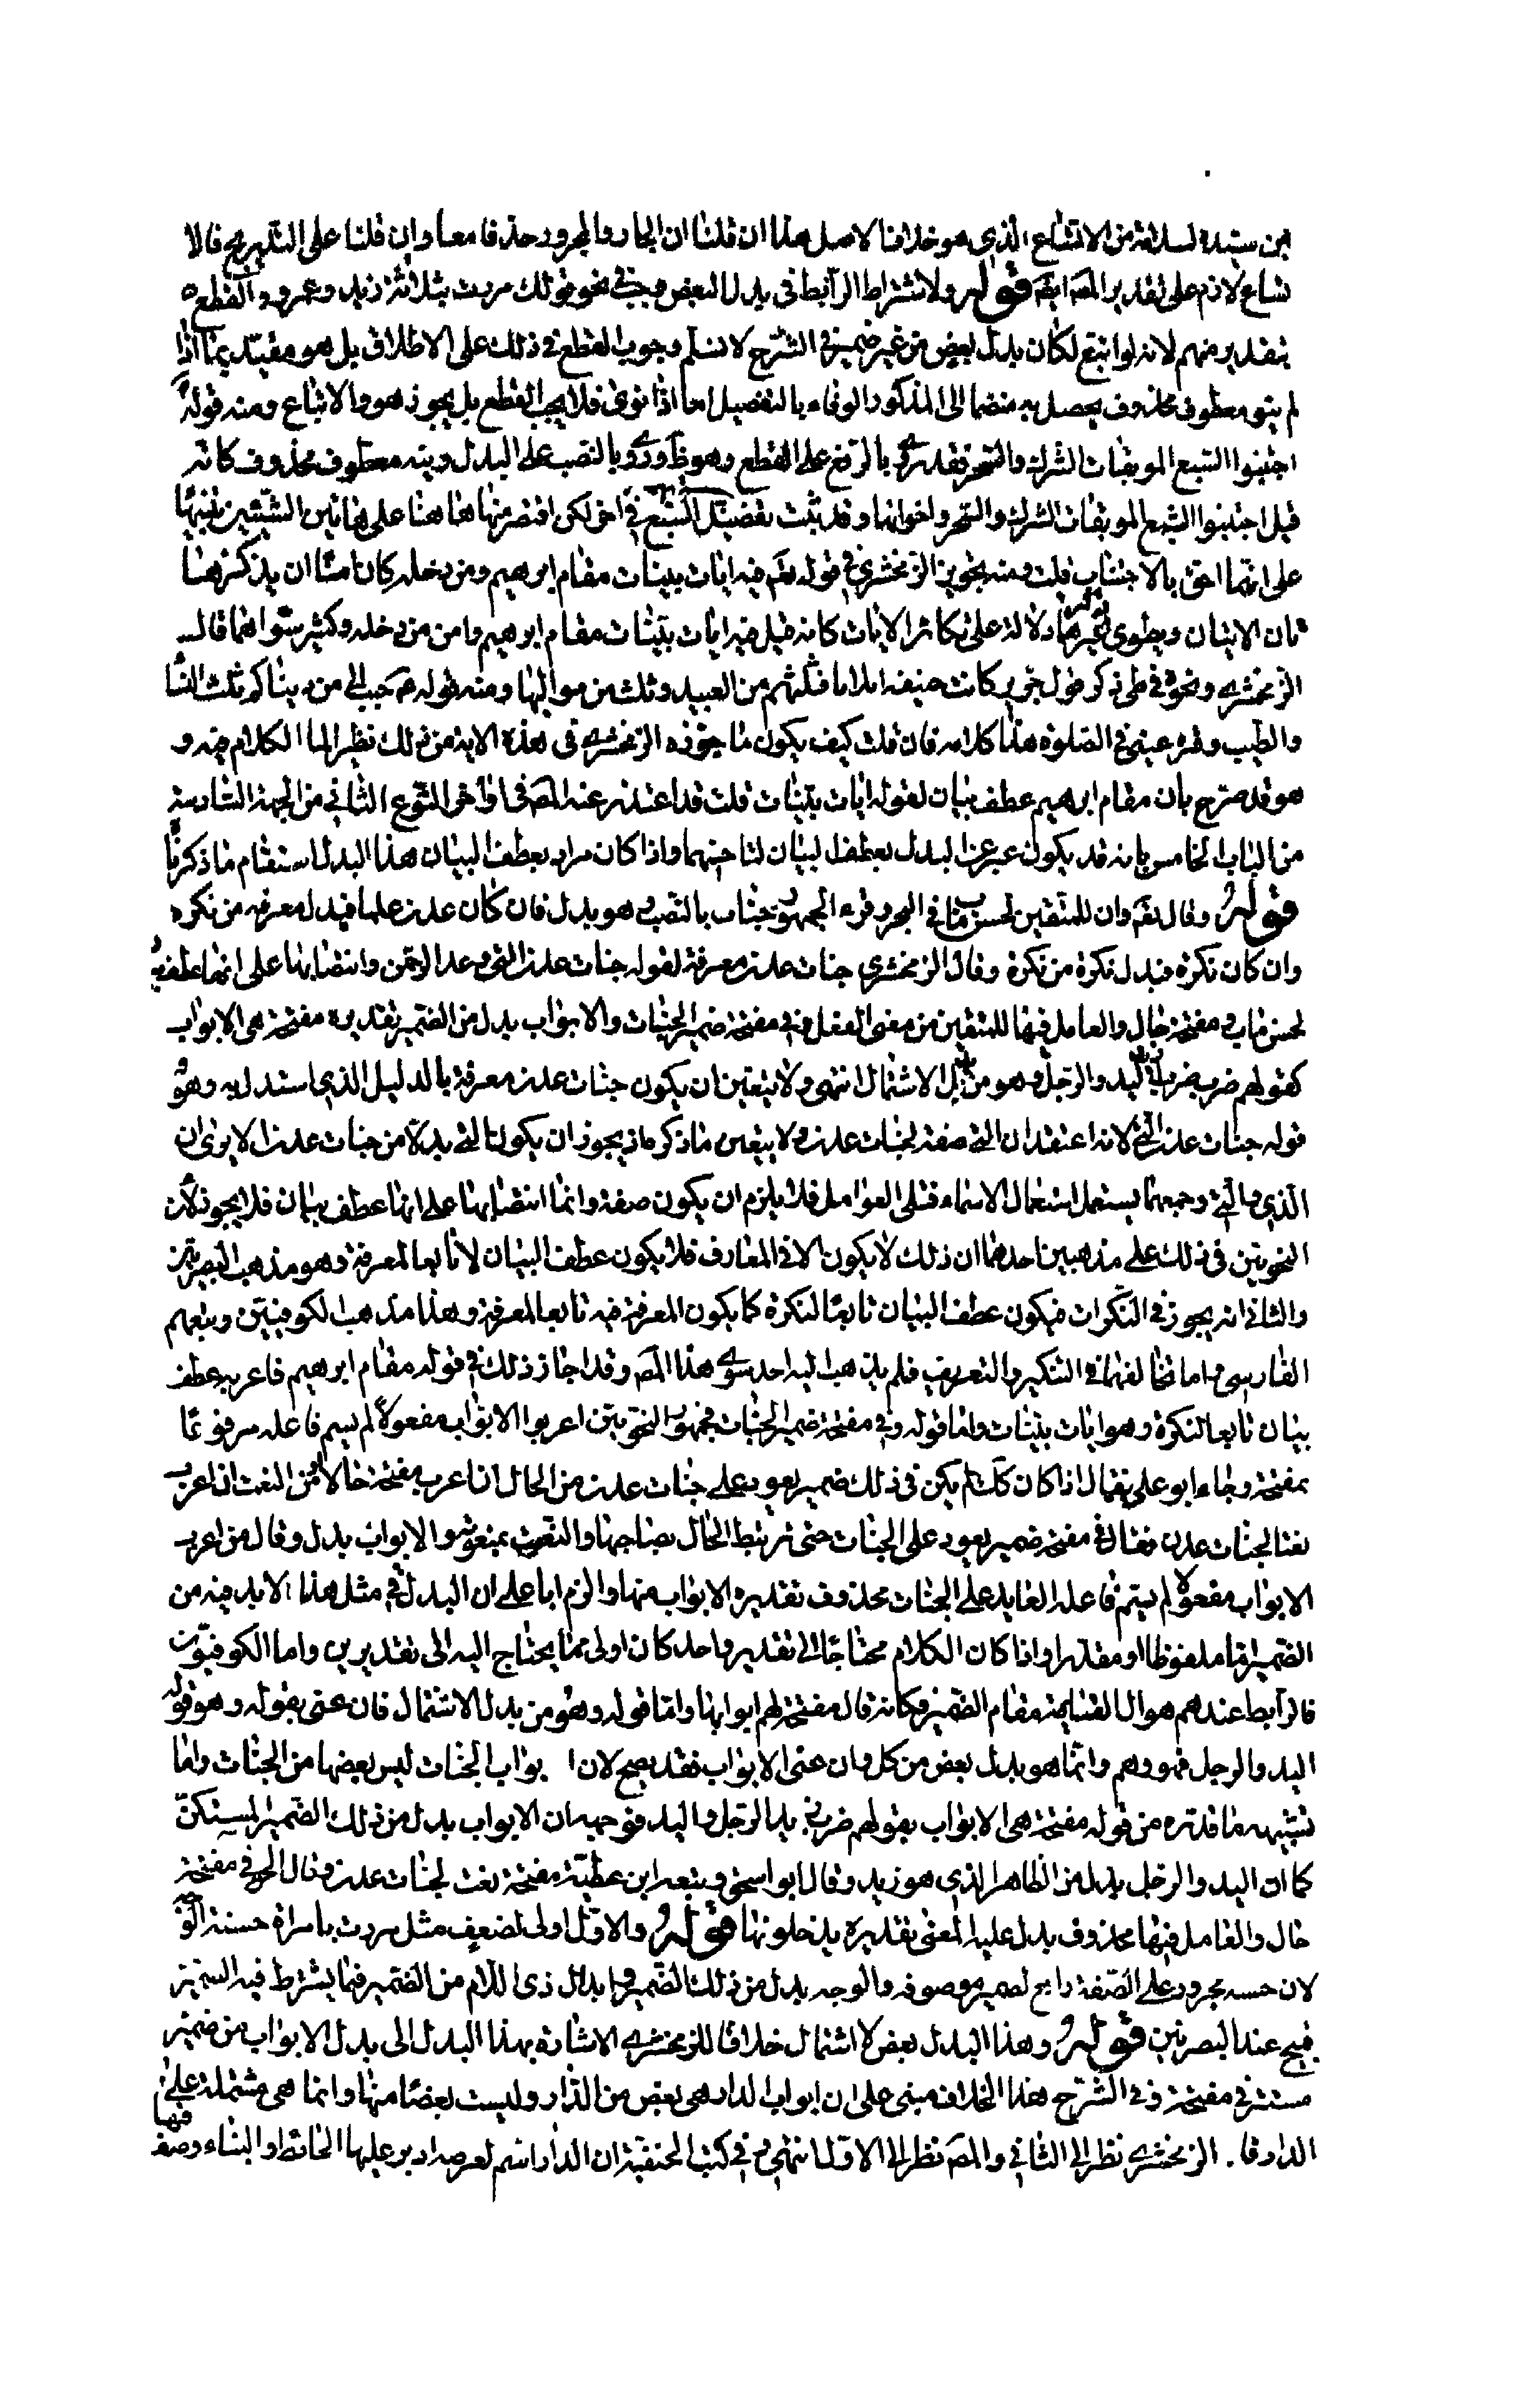 من سيبه لسلامته من الاتساع الذي هو خلاف الاصل هذا ان قلنا ان الجار والمجرور حذفا معا وان قلنا على التدريج فالا
تساع لازم على تقدير المص ايضا قوله ولاشتراط الرابط في بدل البعض وجب في نحو قولك مررت بثلاثة زيد وعمرو القطع
بتقدير منهم لانه لو اتبع لكان بدل بعض من غير ضمير في الشرح لا نسلم وجوب القطع في ذلك على الاطلاق بل هو مقيد بما اذا
لم ينو معطوف محذوف يحصل به منضما الى المذكور الوفاء بالتفصيل اما اذا نوى فلا يجب القطع بل يجوز هو والاتباع ومنه قوله
اجتنبوا السبع الموبقات الشرك والسحر فقد روي بالرفع على القطع وهو ظ وروي بالنصب على البدل وفيه معطوف محذوف كانه
قيل اجتنبوا السبع الموبقات الشرك والسحر واخواتها وقد ثبت تفصيل السبع في اخر لكن اقتصر منها هاهنا على هاتين الشيئين تنبيها
على انهما احق بالاجتناب قلت ومنه تجويز الزمخشري في قوله تع فيه ايات بينات مقام ابراهيم ومن دخله كان امنا ان يذكر هنا
تان الايتان ويطوي ذكر غيرهما دلالة على تكاثر الايات كانه قيل فيه ايات بينات مقام ابراهيم وامن من دخله وكثير سواهما قال
الزمخشري ونحوه في طي ذكر قول جرير كانت حنيفة اثلاثا فثلثهم من العبيد وثلث من مواليها ومنه قوله ع حبب الي من دنياكم ثلث النسا
والطيب وقرة عيني في الصلوة هذا كلامه فان قلت كيف يكون ما جوزه الزمخشري في هذه الاية من ذلك نظير الما الكلام فيه و
هو قد صرح بان مقام ابراهيم عطف بيان لقوله ايات بينات قلت قد اعتذر عنه المص في اواخر النوع الثاني من الجهة السادسة
من الباب الخامس بانه قد يكون عبر عن البدل بعطف البيان لتاخيهما واذا كان مراده بعطف البيان هذا البدل استقام ما ذكرنا
قوله وقال تع وان للمتقين لحسن ماب في البحر وقرء الجمهور جنات بالنصب وهو بدل فان كان عدن علما فبدل معرفه من نكره
وان كان نكرة فبدل نكرة من نكرة وقال الزمخشري جنات عدن معرفة لقوله جنات عدن التي وعد الرحمن وانتصابها على انها عطف بيان
لحسن ماب ومفتحة حال والعامل فيها للمتقين من معنى الفعل وفي مفتحة ضمير الجنات والابواب بدل من الضمير تقديره مفتحة هي الابواب
كقولهم ضرب زيد اليد والرجل وهو من بدل الاشتمال انتهى ولا يتعين ان يكون جنات عدن معرفة بالدليل الذي استدل به وهو
قوله جنات عدن التي لانه اعتقد ان التي صفة لجنات عدن ولا يتعين ما ذكره اذ يجوز ان يكون التي بدلا من جنات عدن الا يرى ان
الذي والتي وجمعهما يستعمل استعمال الاسماء فتلى العوامل فلا يلزم ان يكون صفة وانما انتصابها على انها عطف بيان فلا يجوز لان
النحويين في ذلك على مذهبين احدهما ان ذلك لا يكون الا في المعارف فلا يكون عطف البيان الا تابعا لمعرفة وهو مذهب البصريين
والثاني انه يجوز في النكرات فيكون عطف البيان تابعا لنكرة كما يكون المعرفة فيه تابعا لمعرفة وهذا مذهب الكوفيين وتبعهم
الفارسي واما تخالفهما في التنكير والتعريف فلم يذهب اليه احد سوى هذا المص وقد اجاز ذلك في قوله مقام ابراهيم فاعربه عطف
بيان تابعا لنكرة وهو ايات بينات واما قوله وفي مفتحة ضمير الجنات فجمهور النحويين اعربوا الابواب مفعولا لم يسم فاعله مرفوعا
بمفتحة وجاء ابو علي فقال اذا كان كذلك لم يكن في ذلك ضمير يعود على جنات عدن من الحال ان اعرب مفتحة حالا او من النعت ان اعرب
نعتا لجنات عدن فقال في مفتحة ضمير يعود على الجنات حتى يرتبط الحال بصاحبها والنعت بمنعوته والابواب بدل وقال من اعرب
الابواب مفعولا لم يسم فاعله العايد على الجنات محذوف تقديره الابواب منها والزم ابا علي ان البدل في مثل هذا لابد فيه من
الضمير اما ملفوظا او مقدرا واذا كان الكلام محتاجا الى تقدير واحد كان اولى مما يحتاج اليه الى تقديرين واما الكوفيون
فالرابط عندهم هو ال لقيامه مقام الضمير فكانه قال مفتحة لهم ابوابها واما قوله وهو من بدل الاشتمال فان عنى بقوله وهو قوله
اليد والرجل فهو وهم وانما هو بدل بعض من كل وان عنى الابواب فقد يصح لان ا بواب الجنات ليس بعضها من الجنات واما
تشبيهه ما قدره من قوله مفتحة هي الابواب بقولهم ضرب زيد الرجل واليد فوجهه ان الابواب بدل من ذلك الضمير المستكن
كما ان اليد والرجل بدل من الظاهر الذي هو زيد وقال ابو اسحق وتبعه ابن عطية مفتحة نعت لجنات عدن وقال الحوفي مفتحة
حال والعامل فيها محذوف يدل عليه المعنى تقديره يدخلونها قوله والاول اولى لضعف مثل مررت بامراة حسنة الوجه
لان حسنه مجرور على الصفة رافع لضمير موصوفه والوجه بدل من ذلك الضمير وابدال ذي اللام من الضمير فيما يشترط فيه الضمير
قبيح عند البصريين قوله وهذا البدل بعض لا اشتمال خلافا للزمخشري الاشارة بهذا البدل الى بدل الابواب من ضمير
مستتر في مفتحة وفي الشرح هذا الخلاف مبني على ان ابواب الدار هي بعض من الدار وليست بعضا منها وانما هي مشتملة عليها
الدار فا. الزمخشري نظر الى الثاني والمص نظر الى الاول انتهى وفي كتب الحنفية ان الدار اسم لعرصه ادير عليها الحائط والبناء وصف
فيها